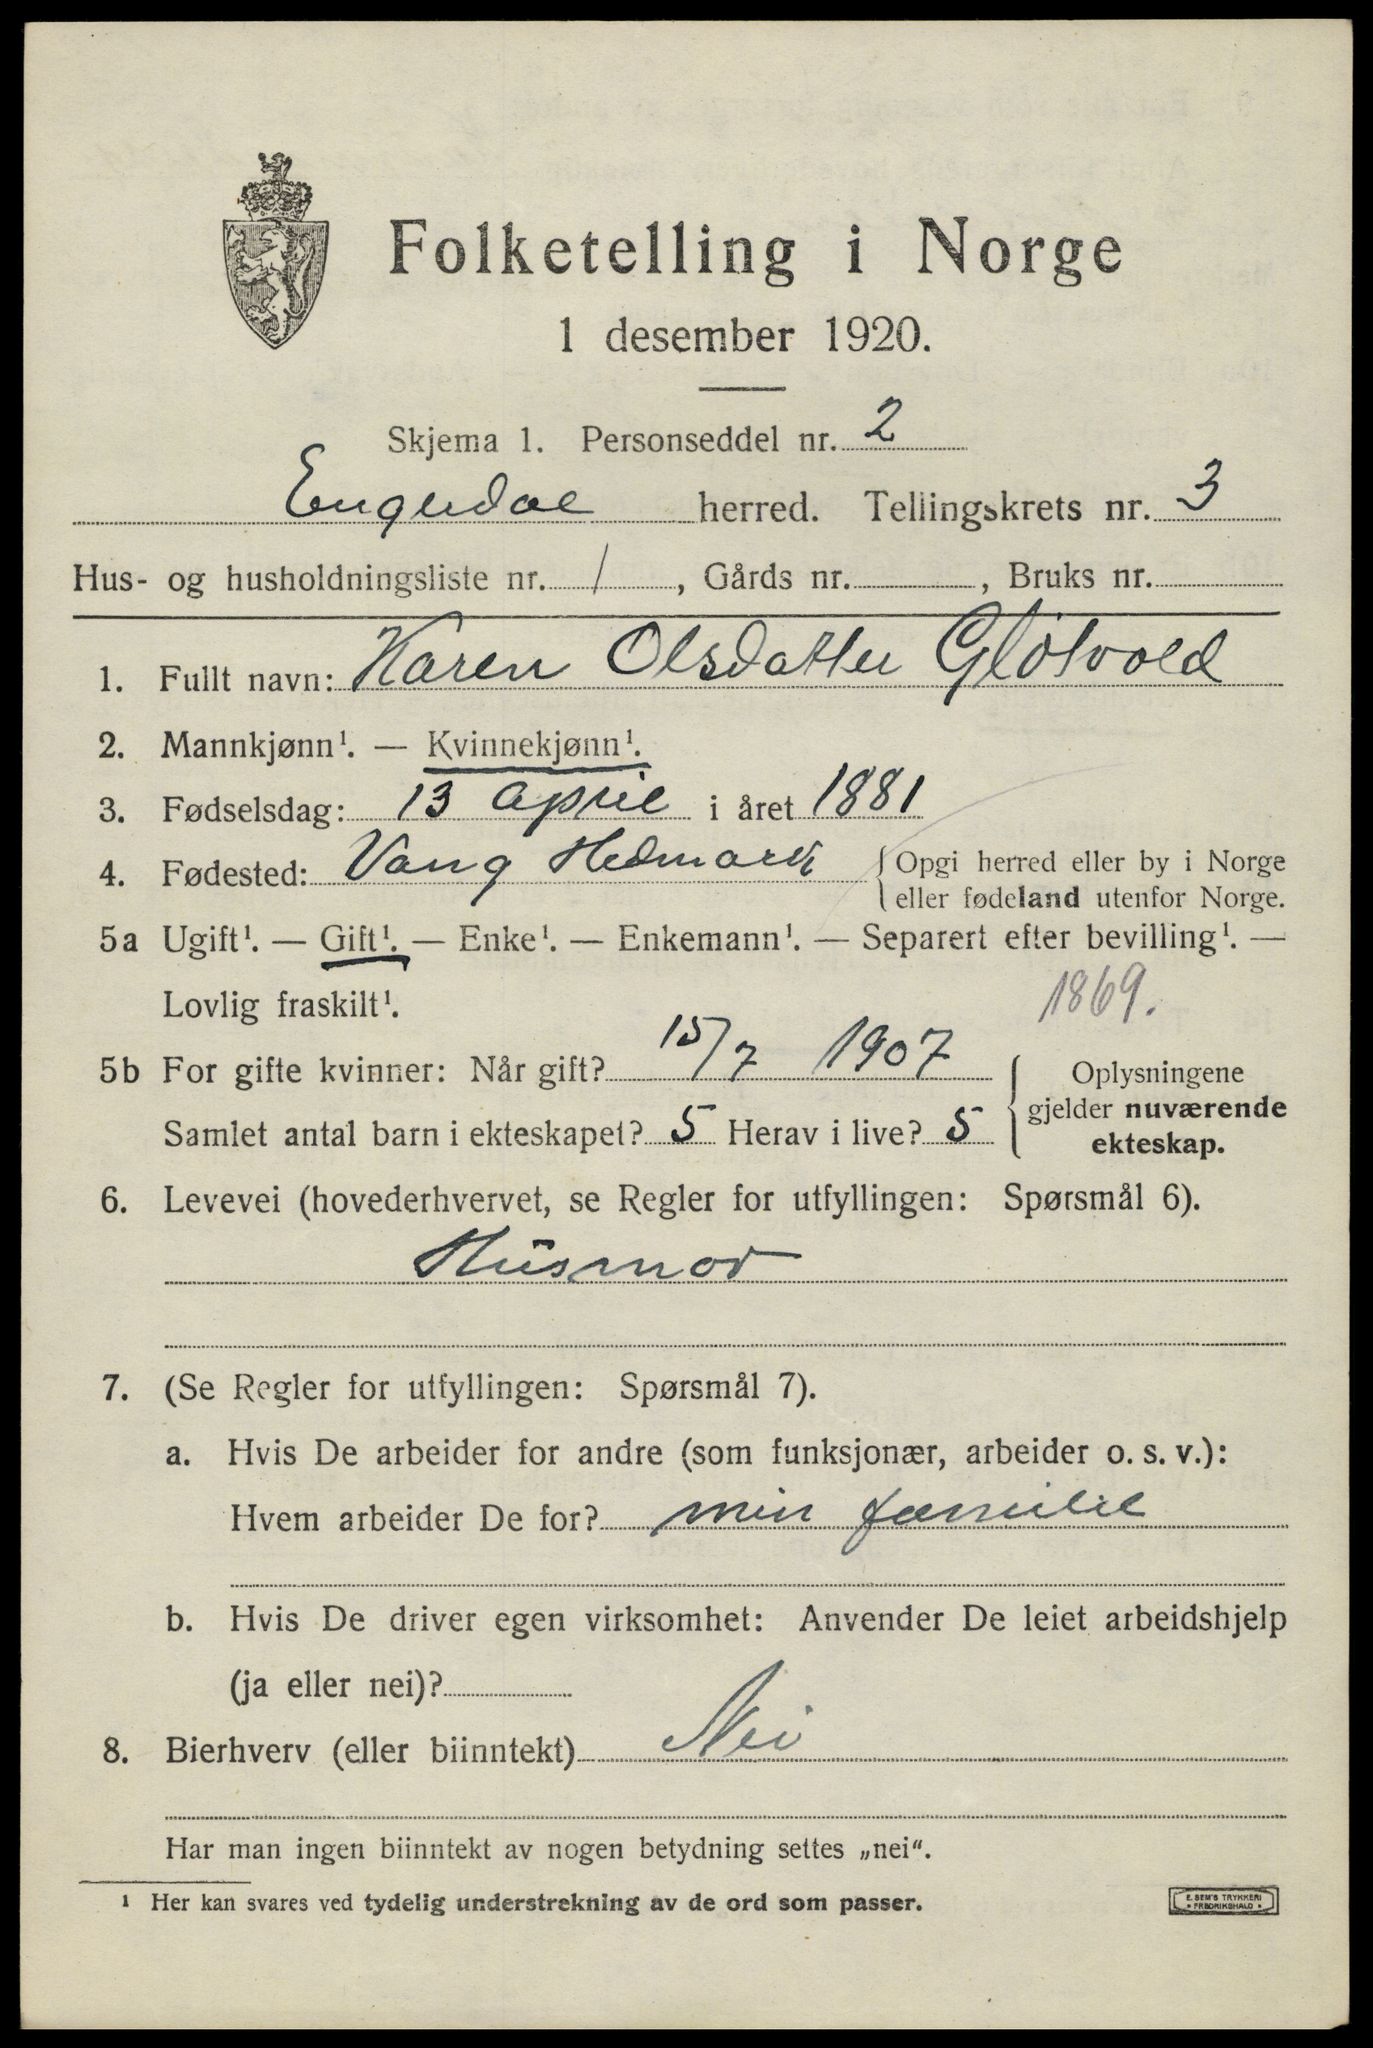 Folketelling i Norge
1 desember 1920.
Skjema 1. Personseddel nr. 2
Engerdal herred. Tellingskrets nr. 3
Hus- og husholdningsliste nr. 1, Gårds nr. , Bruks nr.
1. Fullt navn: Karen Olsdatter Gløtvold
2. Mannkjønn¹. — Kvinnekjønn¹.
3. Fødselsdag: 13 april i året 1881
4. Fødested: Vang Hedmark {Opgi herred eller by i Norge
eller fødeland utenfor Norge.
5a Ugift¹. — Gift¹. — Enke¹. — Enkemann¹. — Separert efter bevilling¹. —
Lovlig fraskilt¹. 1869.
5b For gifte kvinner: Når gift? 15/7 1907
Samlet antal barn i ekteskapet? 5 Herav i live? 5
{Oplysningene
gjelder nuværende
ekteskap.
6. Levevei (hovederhvervet, se Regler for utfyllingen: Spørsmål 6).
Husmor
7. (Se Regler for utfyllingen: Spørsmål 7).
a. Hvis De arbeider for andre (som funksjonær, arbeider o. s. v.):
Hvem arbeider De for? min familie
b. Hvis De driver egen virksomhet: Anvender De leiet arbeidshjelp
(ja eller nei)?
8. Bierhverv (eller biinntekt) Nei
Har man ingen biinntekt av nogen betydning settes „nei“.
¹ Her kan svares ved tydelig understrekning av de ord som passer.
E. SEM'S TRYKKERI
• FREDRIKSHALD •